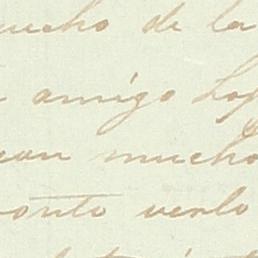 mucho de la
amigo Lop
ean mucho
ponto verlo